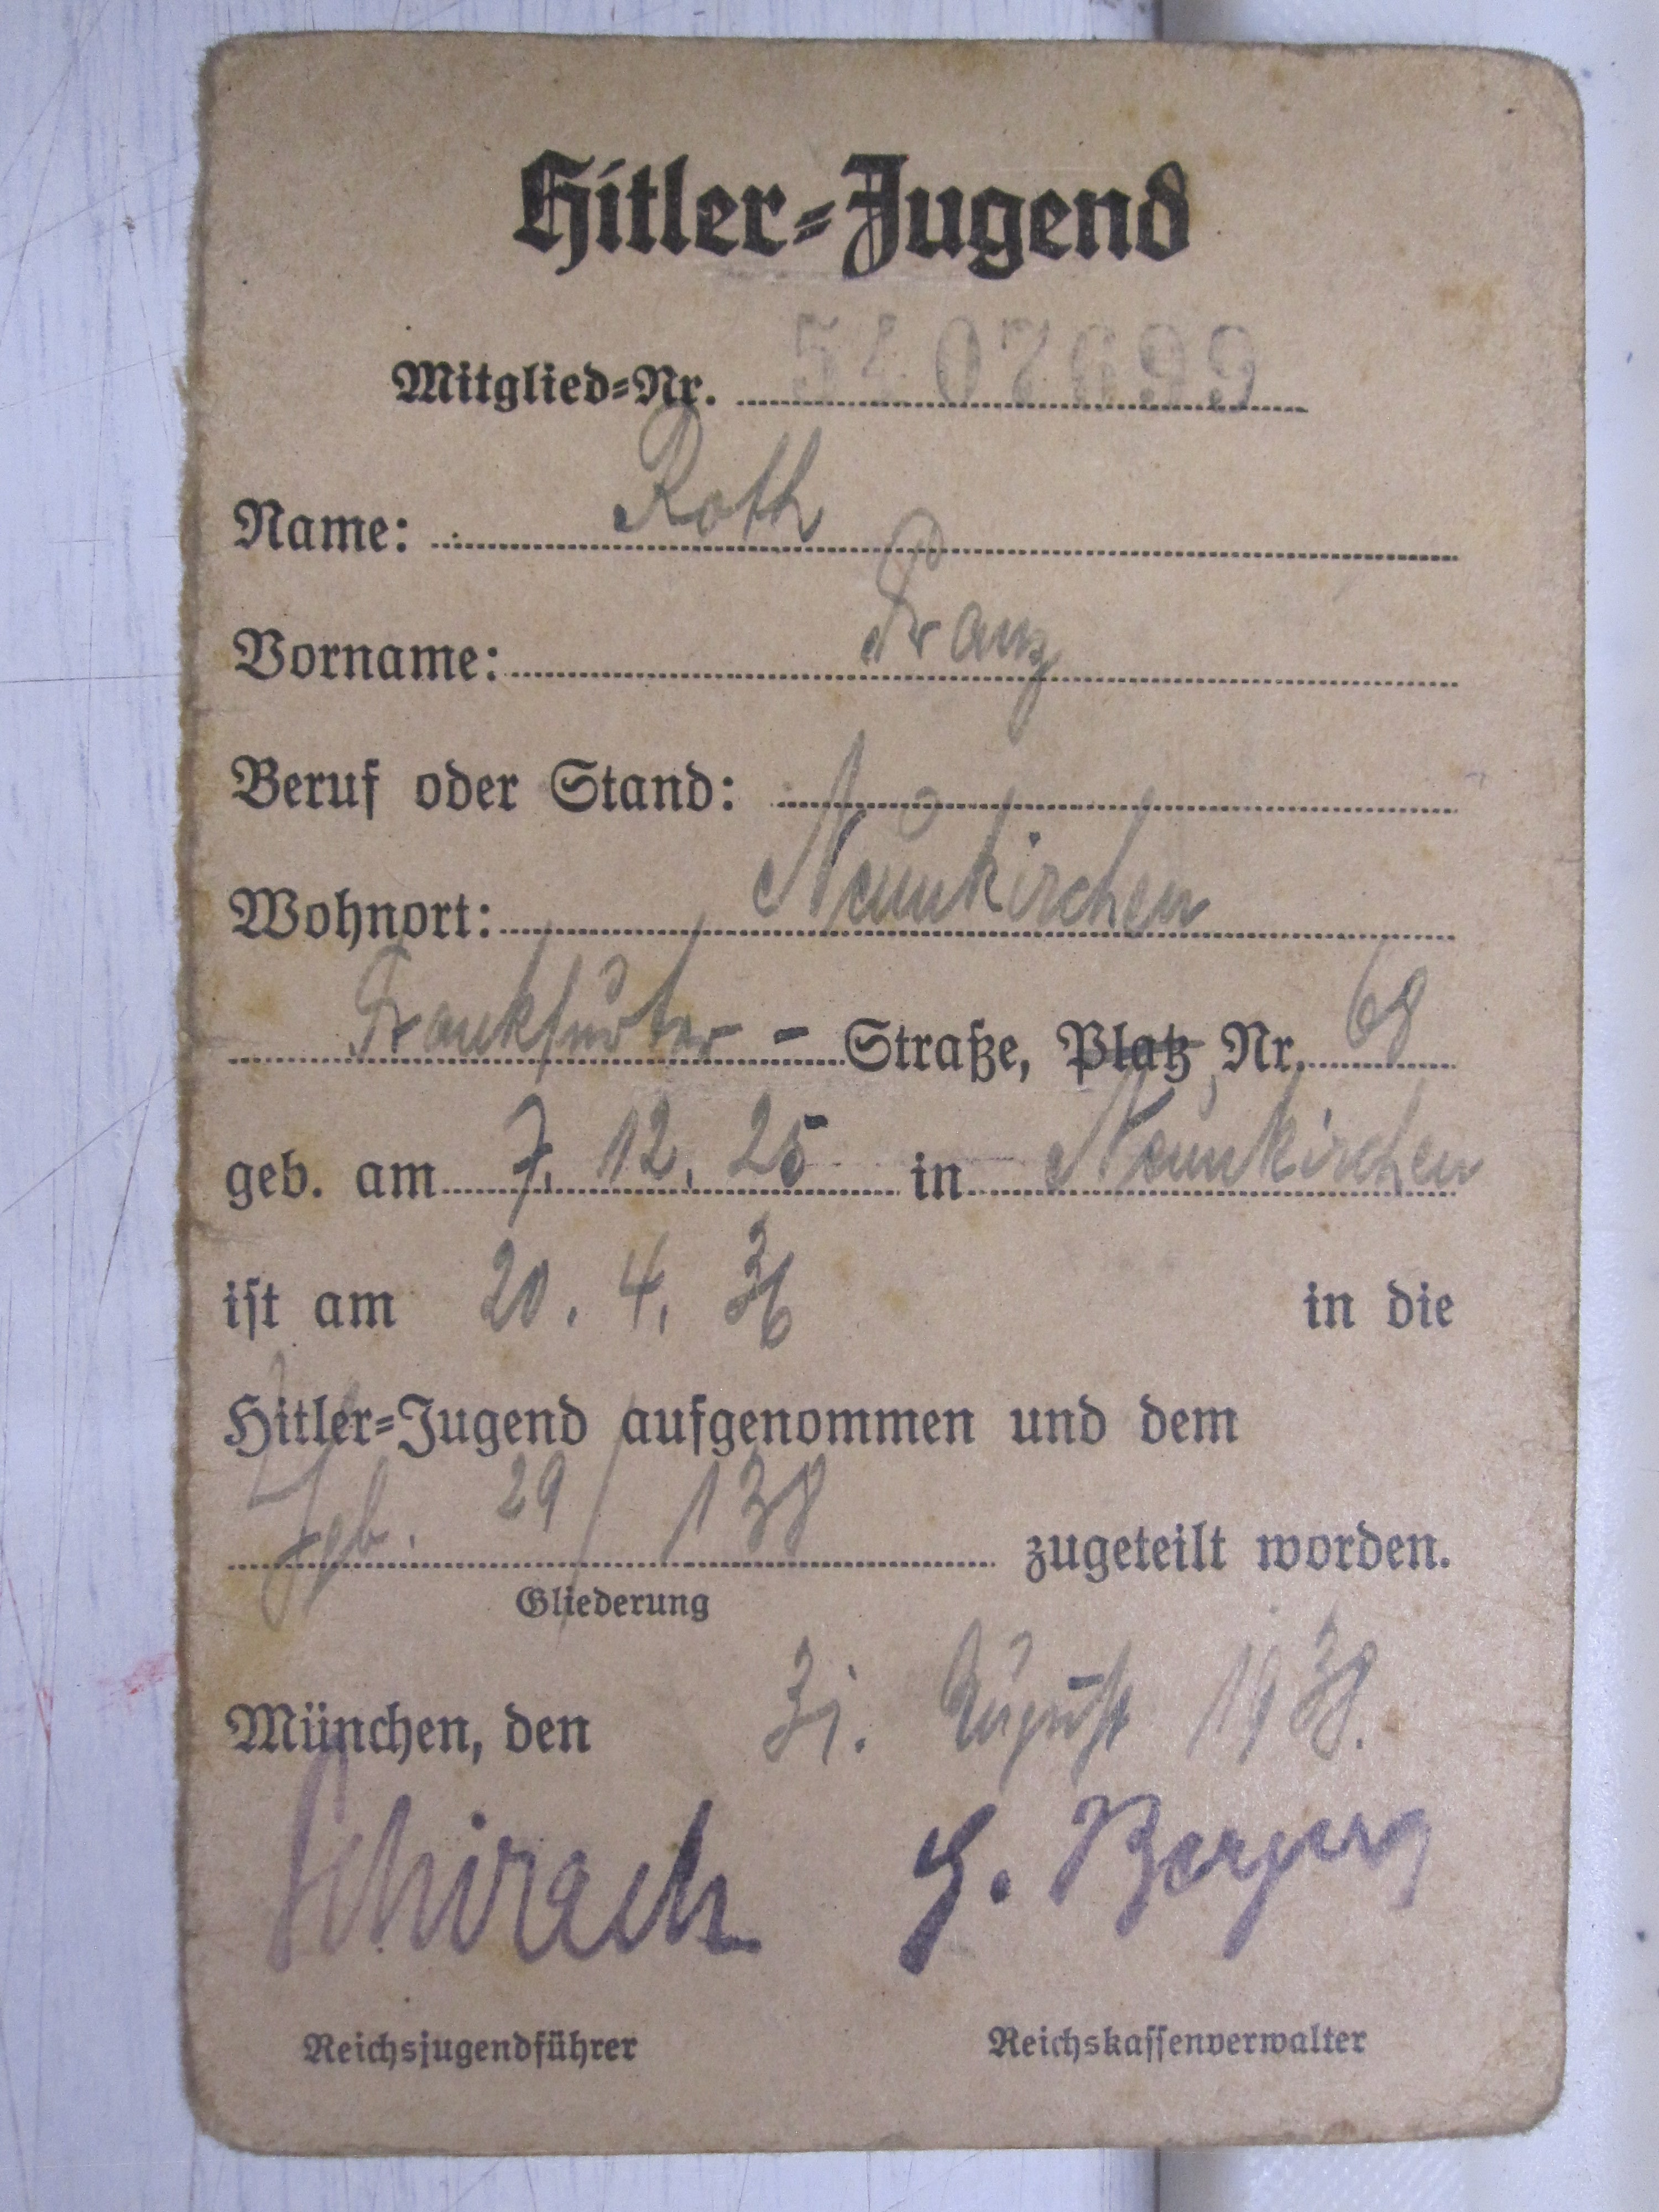 Hitler-Jugend
Mitglied-Nr. 5407699
Name: Roth
Vorname: Franz
Beruf oder Stand:
Wohnort: Neunkirchen
Frankfurter - Straße, Platz Nr. 68
geb. am 7. 12. 25 in Neunkirchen
ist am 20. 4. 36 in die
Hitler-Jugend aufgenommen und dem
29/138 zugeteilt worden.
Gliederung
München, den 31. August 1938.
Schirach G. Berger
Reichsjugendführer Reichskassenverwalter